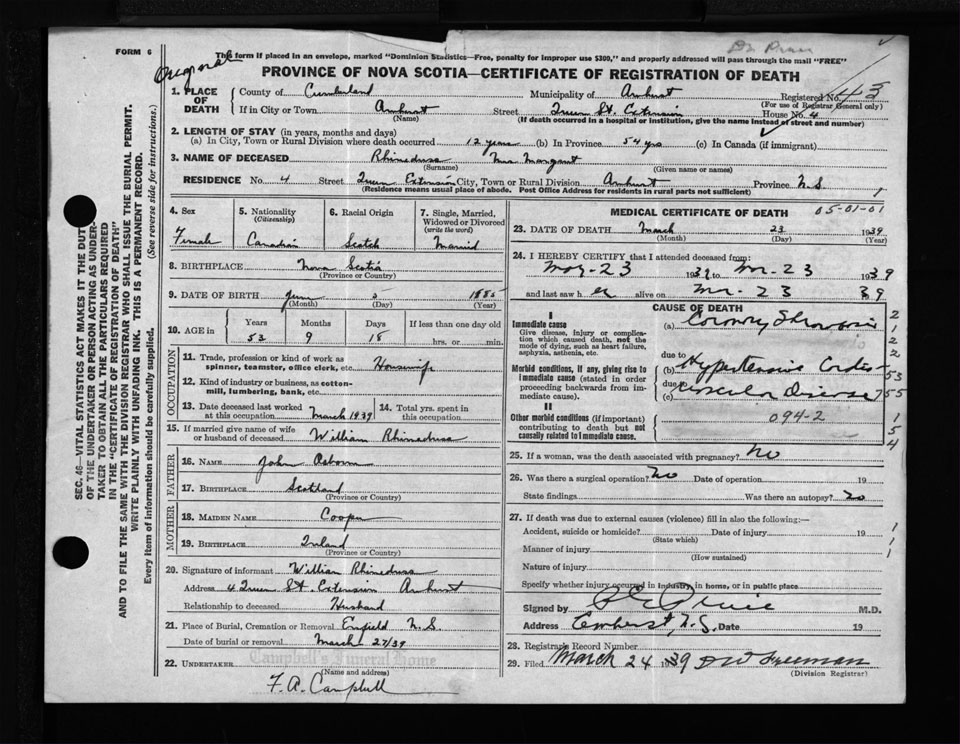 FORM 6
Original
This form if placed in an envelope, marked "Dominion Statistics—Free, penalty for improper use $300," and properly addressed will pass through the mail "FREE"
PROVINCE OF NOVA SCOTIA—CERTIFICATE OF REGISTRATION OF DEATH
1. PLACE OF DEATH County of Cumberland Municipality of Amherst Registered No. 43
(For use of Registrar General only)
If in City or Town Amherst Street Queen St. Extension House No. 4
(Name) (If death occurred in a hospital or institution, give the name instead of street and number)
2. LENGTH OF STAY (in years, months and days)
(a) In City, Town or Rural Division where death occurred 12 years (b) In Province 54 yrs (c) In Canada (if immigrant)
3. NAME OF DECEASED Rhinedress Mrs Margaret
(Surname) (Given name or names)
RESIDENCE No. 4 Street Queen Extension City, Town or Rural Division Amherst Province N.S. 1
(Residence means usual place of abode. Post Office Address for residents in rural parts not sufficient)
4. Sex Female
5. Nationality (Citizenship) Canadian
6. Racial Origin Scotch
7. Single, Married, Widowed or Divorced (write the word) Married
8. BIRTHPLACE Nova Scotia
(Province or Country)
9. DATE OF BIRTH June 5 1885
(Month) (Day) (Year)
10. AGE in Years 53 Months 9 Days 18 If less than one day old hrs. or min.
OCCUPATION
11. Trade, profession or kind of work as spinner, teamster, office clerk, etc. Housewife
12. Kind of industry or business, as cotton-mill, lumbering, bank, etc.
13. Date deceased last worked at this occupation March 1939
14. Total yrs. spent in this occupation
15. If married give name of wife or husband of deceased William Rhinedress
FATHER
16. NAME John Osborn
17. BIRTHPLACE Scotland
(Province or Country)
MOTHER
18. MAIDEN NAME Cooper
19. BIRTHPLACE Ireland
(Province or Country)
20. Signature of informant William Rhinedress
Address 4 Queen St. Extension Amherst
Relationship to deceased Husband
21. Place of Burial, Cremation or Removal Enfield N.S.
Date of burial or removal March 27/39
22. UNDERTAKER Campbell's Funeral Home
(Name and address)
F. A. Campbell
MEDICAL CERTIFICATE OF DEATH 05-01-01
23. DATE OF DEATH March 23 1939
(Month) (Day) (Year)
24. I HEREBY CERTIFY that I attended deceased from:
Mar-23 1939 to Mar-23 1939
and last saw her alive on Mar-23 39
CAUSE OF DEATH
I
Immediate cause
Give disease, injury or complication which caused death, not the mode of dying, such as heart failure, asphyxia, asthenia, etc.
(a) Coronary Thrombosis
due to
Morbid conditions, if any, giving rise to immediate cause (stated in order proceeding backwards from immediate cause).
(b) Hypertensive Cardio-
due to
(c) Vascular Disease
II
Other morbid conditions (if important) contributing to death but not causally related to immediate cause.
094-2
25. If a woman, was the death associated with pregnancy? No
26. Was there a surgical operation? No Date of operation 19
State findings Was there an autopsy? No
27. If death was due to external causes (violence) fill in also the following:—
Accident, suicide or homicide? Date of injury 19
(State which)
Manner of injury
(How sustained)
Nature of injury
Specify whether injury occurred in industry, in home, or in public place
Signed by M.D.
Address Amherst, N.S. Date 19
28. Registrar's Record Number
29. Filed March 24 1939 D W Freeman
(Division Registrar)
SEC. 46—VITAL STATISTICS ACT MAKES IT THE DUTY OF THE UNDERTAKER OR PERSON ACTING AS UNDERTAKER TO OBTAIN ALL THE PARTICULARS REQUIRED IN THE "CERTIFICATE OF REGISTRATION OF DEATH" AND TO FILE THE SAME WITH THE DIVISION REGISTRAR WHO SHALL ISSUE THE BURIAL PERMIT.
WRITE PLAINLY WITH UNFADING INK. THIS IS A PERMANENT RECORD.
Every item of information should be carefully supplied. (See reverse side for instructions.)